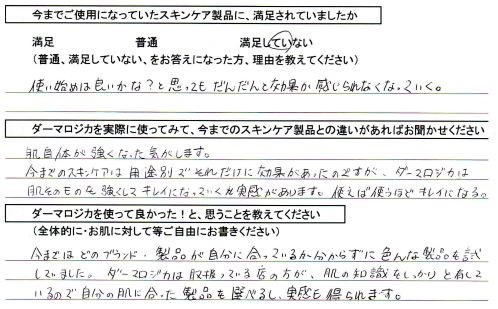 今までご使用になっていたスキンケア製品に、満足されていましたか
満足　普通　満足していない
(普通、満足していない、をお答えになった方、理由を教えてください)
使い始めは良いかな？と思ってもだんだんと効果が感じられなくなっていく。
ダーマロジカを実際に使ってみて、今までのスキンケア製品との違いがあればお聞かせください
肌自体が強くなった気がします。
今までのスキンケアは用途別でそれだけに効果があったのですが、ダーマロジカは
肌そのものを強くしてキレイになっていく実感があります。使えば使うほどキレイになる。
ダーマロジカを使って良かった！と、思うことを教えてください
(全体的に・お肌に対して等ご自由にお書きください)
今まではどのブランド・製品が自分に合っているか分からずに色んな製品を試
していました。ダーマロジカは取扱っている店の方が、肌の知識をしっかりと有して
いるので自分の肌に合った製品を選べるし、実感も得られます。